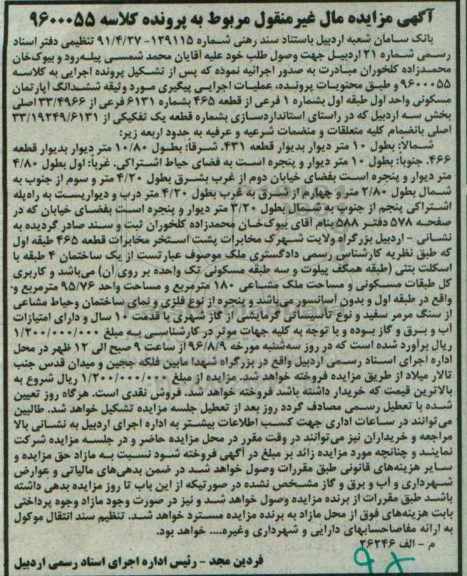 آگهی مزایده مال غیرمنقول مربوط به پرونده کلاسه ۹۶۰۰۰۵۵
بانک سامان شعبه اردبیل باستناد سند رهنی شماره ۱۲۹۱۱۵- ۹۱/۴/۲۷ تنظیمی دفتر اسناد
رسمی شماره ۲۱ اردبیل جهت وصول طلب خود علیه آقایان محمد شمسی پیله‌رود و بیوک‌خان
محمدزاده کلخوران مبادرت به صدور اجرائیه نموده که پس از تشکیل پرونده اجرایی به کلاسه
۹۶۰۰۰۵۵ و طبق محتویات پرونده، عملیات اجرایی پیگیری مورد وثیقه ششدانگ آپارتمان
مسکونی واحد اول طبقه اول بشماره ۱ فرعی از قطعه ۴۶۵ بشماره ۶۱۳۱ فرعی از ۳۳/۴۹۶۶ اصلی
بخش سه اردبیل که در راستای استانداردسازی بشماره قطعه یک تفکیکی از ۳۳/۱۹۲۴۹/۶۱۳۱
اصلی بانضمام کلیه متعلقات و منضمات شرعیه و عرفیه به حدود اربعه زیر:
شمالا: بطول ۱۰ متر دیوار بدیوار قطعه ۴۳۱. شرقا: بطول ۱۰/۸۰ متر دیوار بدیوار قطعه
۴۶۶. جنوبا: بطول ۱۰ متر دیوار و پنجره است به فضای حیاط اشتراکی. غربا: اول بطول ۴/۸۰
متر دیوار و پنجره است بفضای خیابان دوم از غرب بشرق بطول ۴/۲۰ متر و سوم از جنوب به
شمال بطول ۲/۸۰ متر و چهارم از شرق به غرب بطول ۴/۲۰ متر درب و دیواریست به راه‌پله
اشتراکی پنجم از جنوب به شمال بطول ۳/۲۰ متر دیوار و پنجره است بفضای خیابان که در
صفحه ۵۷۸ دفتر ۵۸۸ بنام آقای بیوک‌خان محمدزاده کلخوران ثبت و سند صادر گردیده به
نشانی - اردبیل بزرگراه ولایت شهرک مخابرات پشت استخر مخابرات قطعه ۴۶۵ طبقه اول
که طبق نظریه کارشناس رسمی دادگستری ملک موصوف عبارتست از یک ساختمان ۴ طبقه با
اسکلت بتنی (طبقه همکف پیلوت و سه طبقه مسکونی تک واحده بر روی آن) می‌باشد و کاربری
کل طبقات مسکونی و مساحت ملک مشاعی ۱۸۰ مترمربع و مساحت واحد ۹۵/۷۶ مترمربع و-
واقع در طبقه اول و بدون آسانسور می‌باشد و پنجره از نوع فلزی و نمای ساختمان وحیاط مشاعی
از سنگ مرمر سفید و نوع تأسیساتی گرمایشی از گاز شهری با قدمت ۱۰ سال و دارای امتیازات
آب و برق و گاز بوده و با توجه به کلیه جهات موثر در کارشناسی به مبلغ ۱/۲۰۰/۰۰۰/۰۰۰
ریال برآورد شده است که در روز سه‌شنبه مورخه ۹۶/۸/۹ از ساعت ۹ صبح الی ۱۲ ظهر در محل
اداره اجرای اسناد رسمی اردبیل واقع در بزرگراه شهدا مابین فلکه ججین و میدان قدس جنب
تالار میلاد از طریق مزایده فروخته خواهد شد. مزایده از مبلغ ۱/۲۰۰/۰۰۰/۰۰۰ ریال شروع به
بالاترین قیمت که خریدار داشته باشد فروخته خواهد شد. فروش نقدی است. هرگاه روز تعیین
شده با تعطیل رسمی مصادف گردد روز بعد از تعطیل جلسه مزایده تشکیل خواهد شد. طالبین
می‌توانند در ساعات اداری جهت کسب اطلاعات بیشتر به اداره اجرای اردبیل به نشانی بالا
مراجعه و خریداران نیز می‌توانند در وقت مقرر در محل مزایده حاضر و در جلسه مزایده شرکت
نمایند و چنانچه مورد مزایده زائد بر مبلغ در آگهی فروخته شود نسبت به مازاد حق مزایده و
سایر هزینه‌های قانونی طبق مقررات وصول خواهد شد در ضمن بدهی‌های مالیاتی و عوارض
شهرداری و آب و برق و گاز مشخص نشده در صورتیکه از این باب تا روز مزایده بدهی داشته
باشد طبق مقررات از برنده مزایده وصول خواهد شد و نیز در صورت وجود مازاد وجوه پرداختی
بابت هزینه‌های فوق از محل مازاد به برنده مزایده مسترد خواهد شد. تنظیم سند انتقال موکول
به ارائه مفاصاحسابهای دارایی و شهرداری وغیره.... خواهد بود.
م - الف ۲۶۲۴۶
فردین مجد - رئیس اداره اجرای اسناد رسمی اردبیل